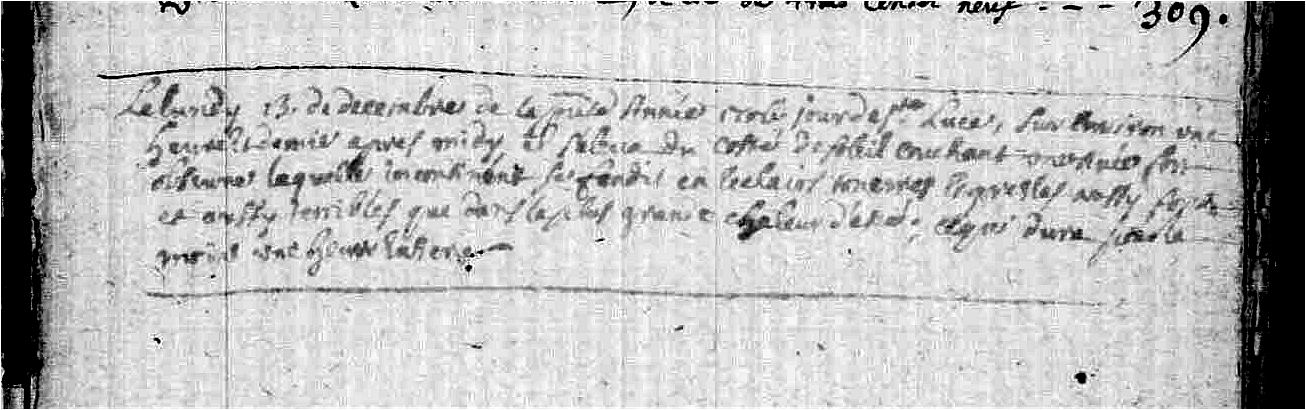 de mil cent neuf - - - 309.
Le lundy 13. de decembre de la pñte Année jour de Ste Luce, sur environ une
heure et demie apres midy il s'eleva du costé de soleil couchant une nuée fort
obscure laquelle incontinent se fendit en eclairs tonerres et gresles aussy fortes
et aussy terribles que dans la plus grande chaleur d'esté, ce qui dura pour le
moins une heure entiere